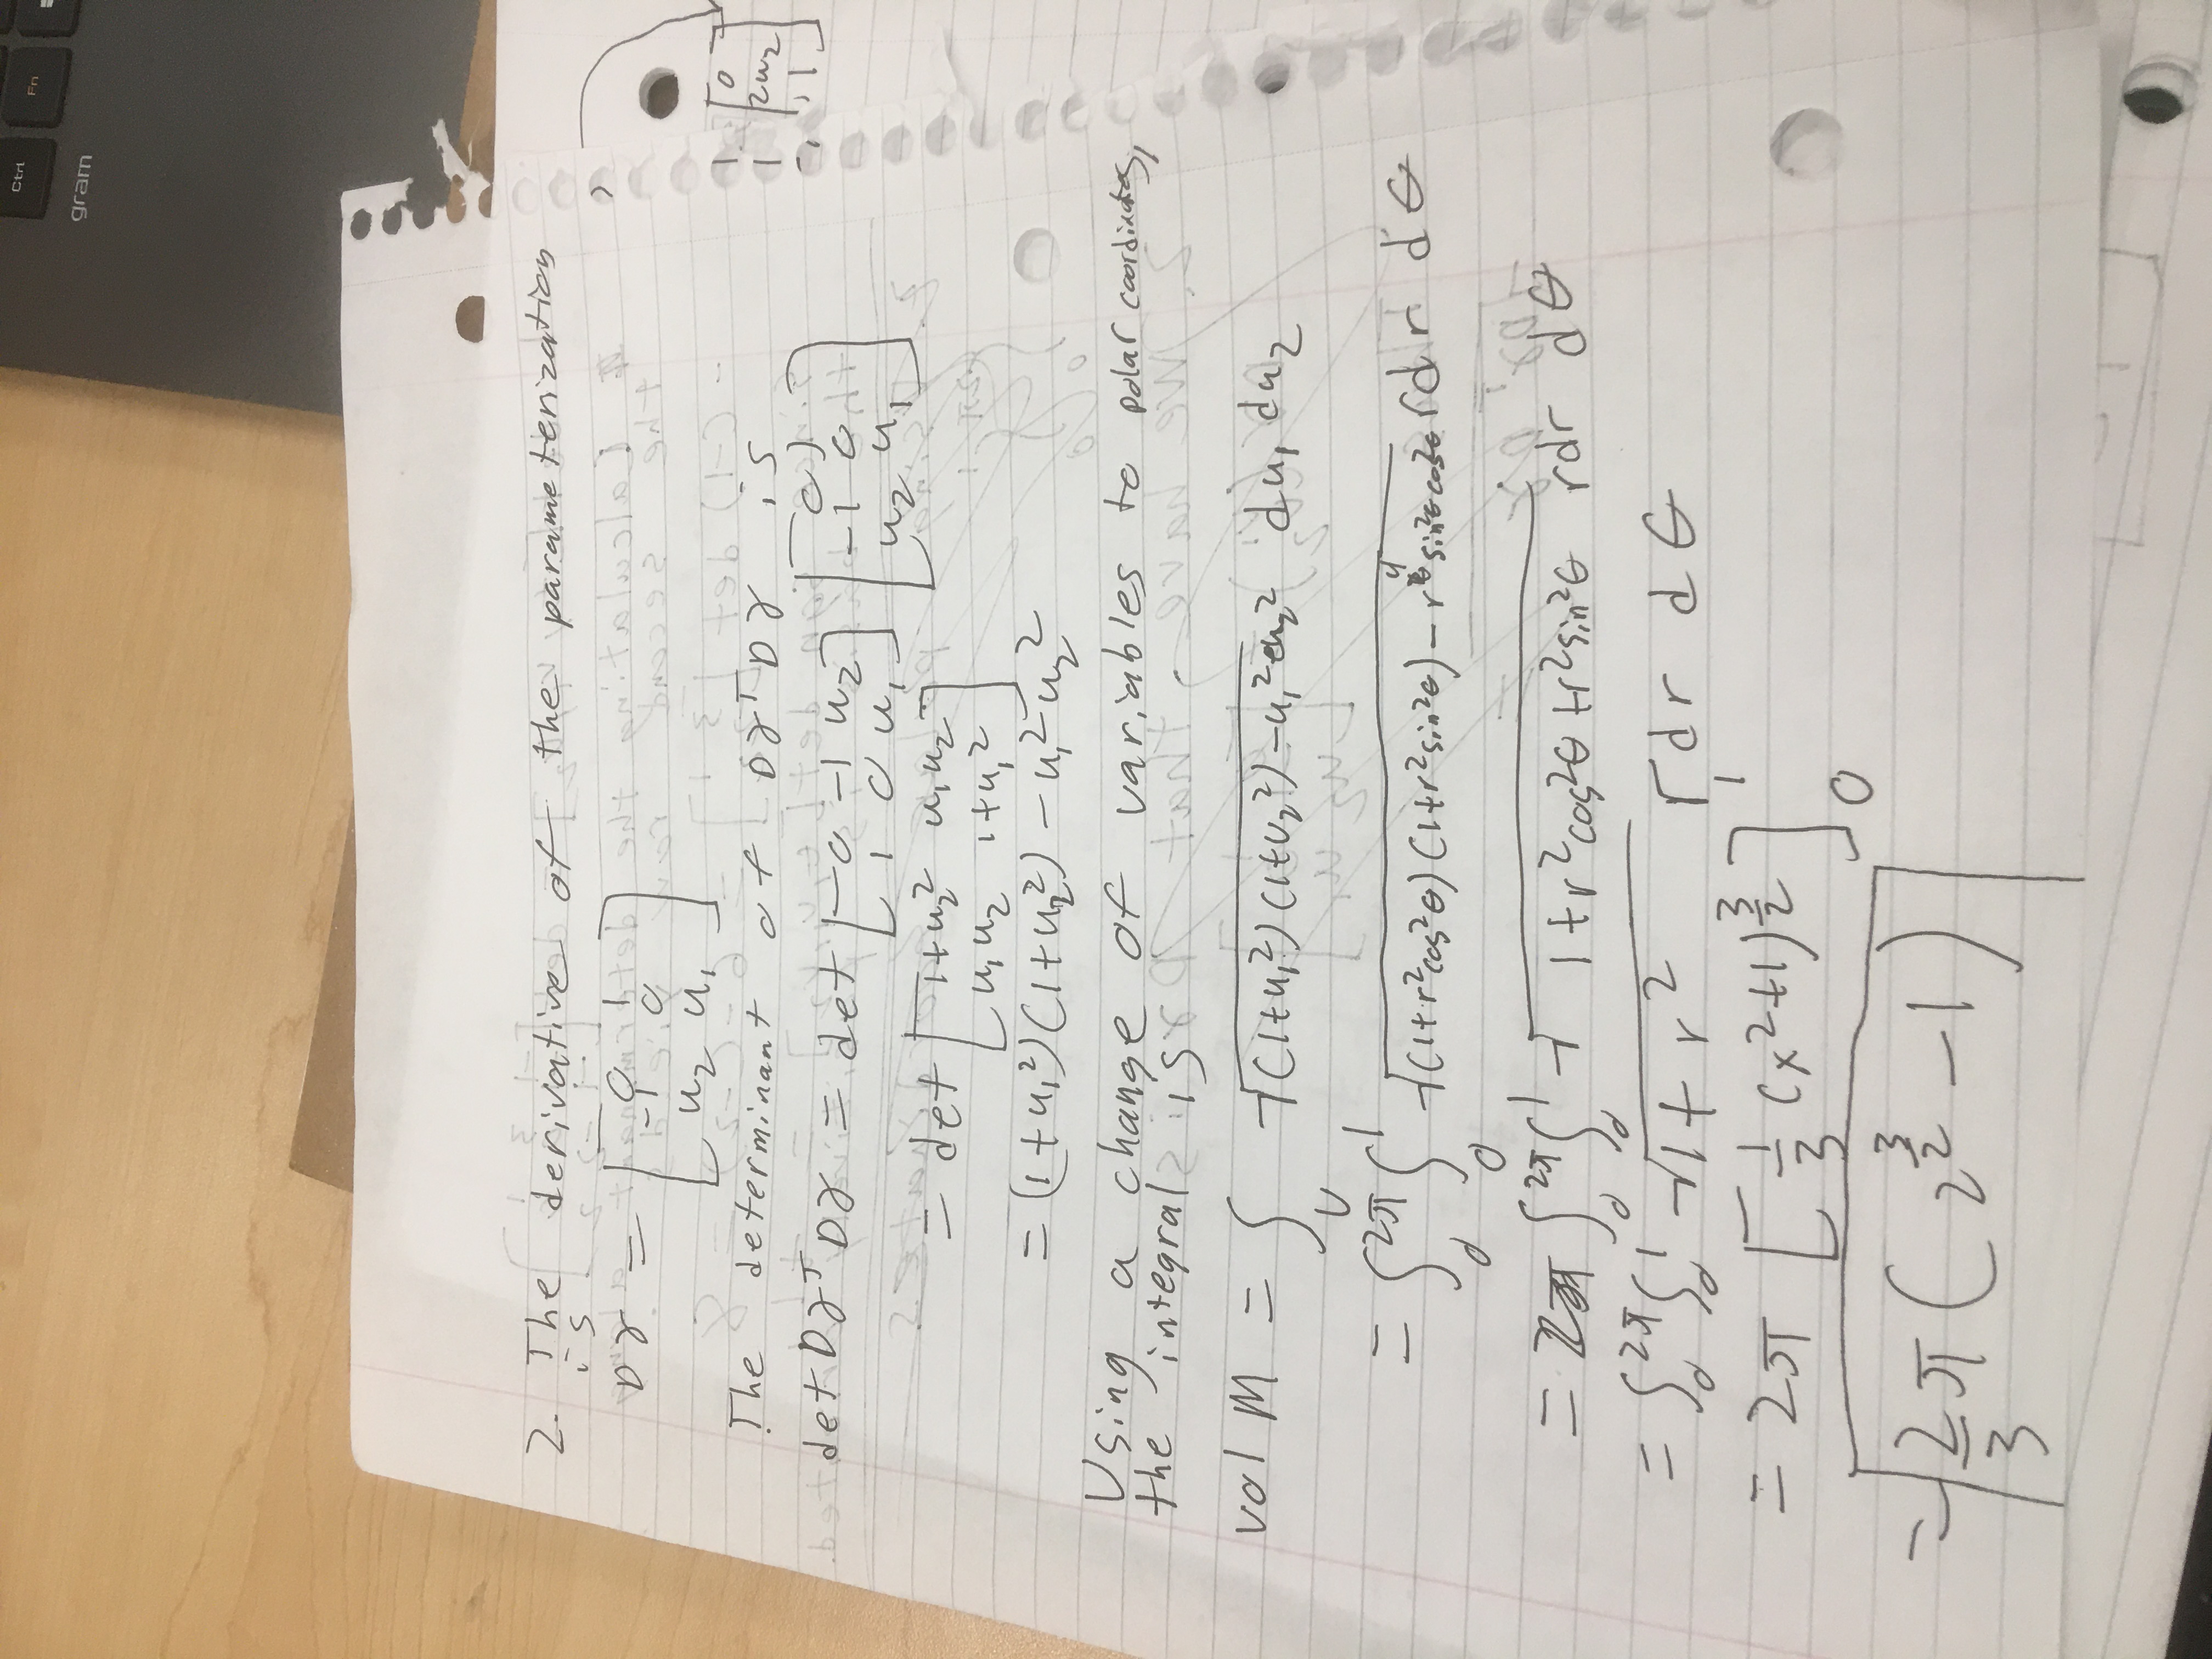 Ctrl
Fn
gram
2. The derivative of the parameterization
is
Dγ = [0 1
-1 0
u₂ u₁]
,
The determinant of DγᵀDγ is
det DγᵀDγ = det [0 -1 u₂
1 0 u₁] [0 1
-1 0
u₂ u₁]
= det [1+u₂² u₁u₂
u₁u₂ 1+u₁²]
= (1+u₁²)(1+u₂²) - u₁²u₂²
Using a change of variables to polar coordinates,
the integral is
vol M = ∫_U √((1+u₁²)(1+u₂²)-u₁²u₂²) du₁ du₂
= ∫₀^2π ∫₀^1 √((1+r²cos²θ)(1+r²sin²θ)-r⁴sin²θcos²θ) rdr dθ
= ∫₀^2π ∫₀^1 √(1+r²cos²θ+r²sin²θ) rdr dθ
= ∫₀^2π ∫₀^1 √(1+r²) rdr dθ
= 2π [1/3 (x²+1)^3/2]₀^1
= 2/3 π (2^3/2 - 1)
[0
2u₂
1]